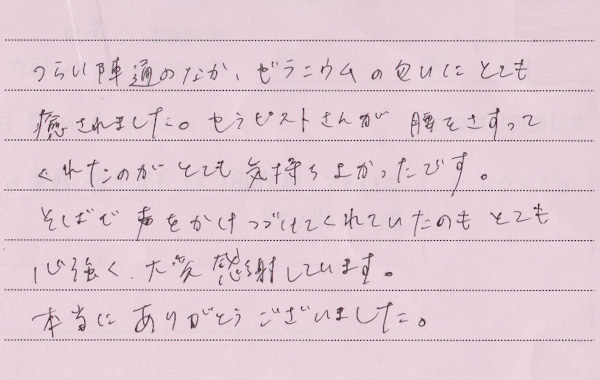 つらい陣通のなか、ゼラニウムの匂いにとても
癒されました。セラピストさんが腰をさすって
くれたのがとても気持ちよかったです。
そばで声をかけつづけてくれていたのもとても
心強く、大変感謝しています。
本当にありがとうございました。